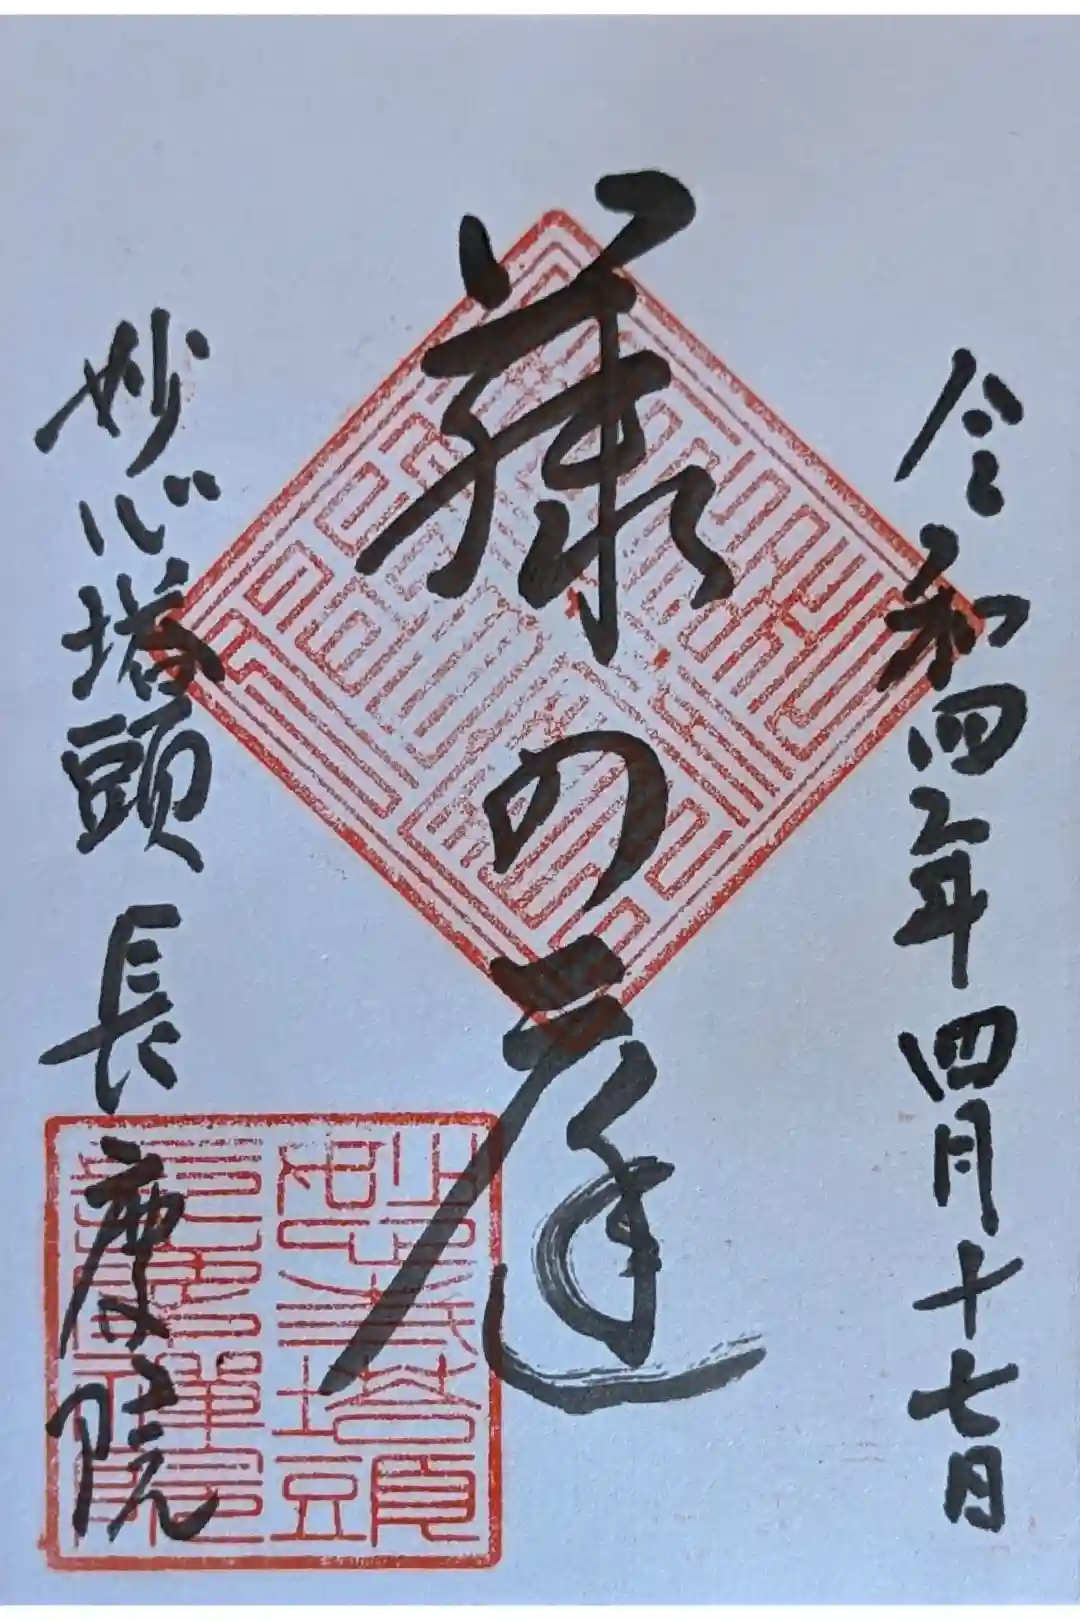 令和四年四月十七日
の庭
妙心塔頭 長慶院
妙心寺塔頭
長慶禪院